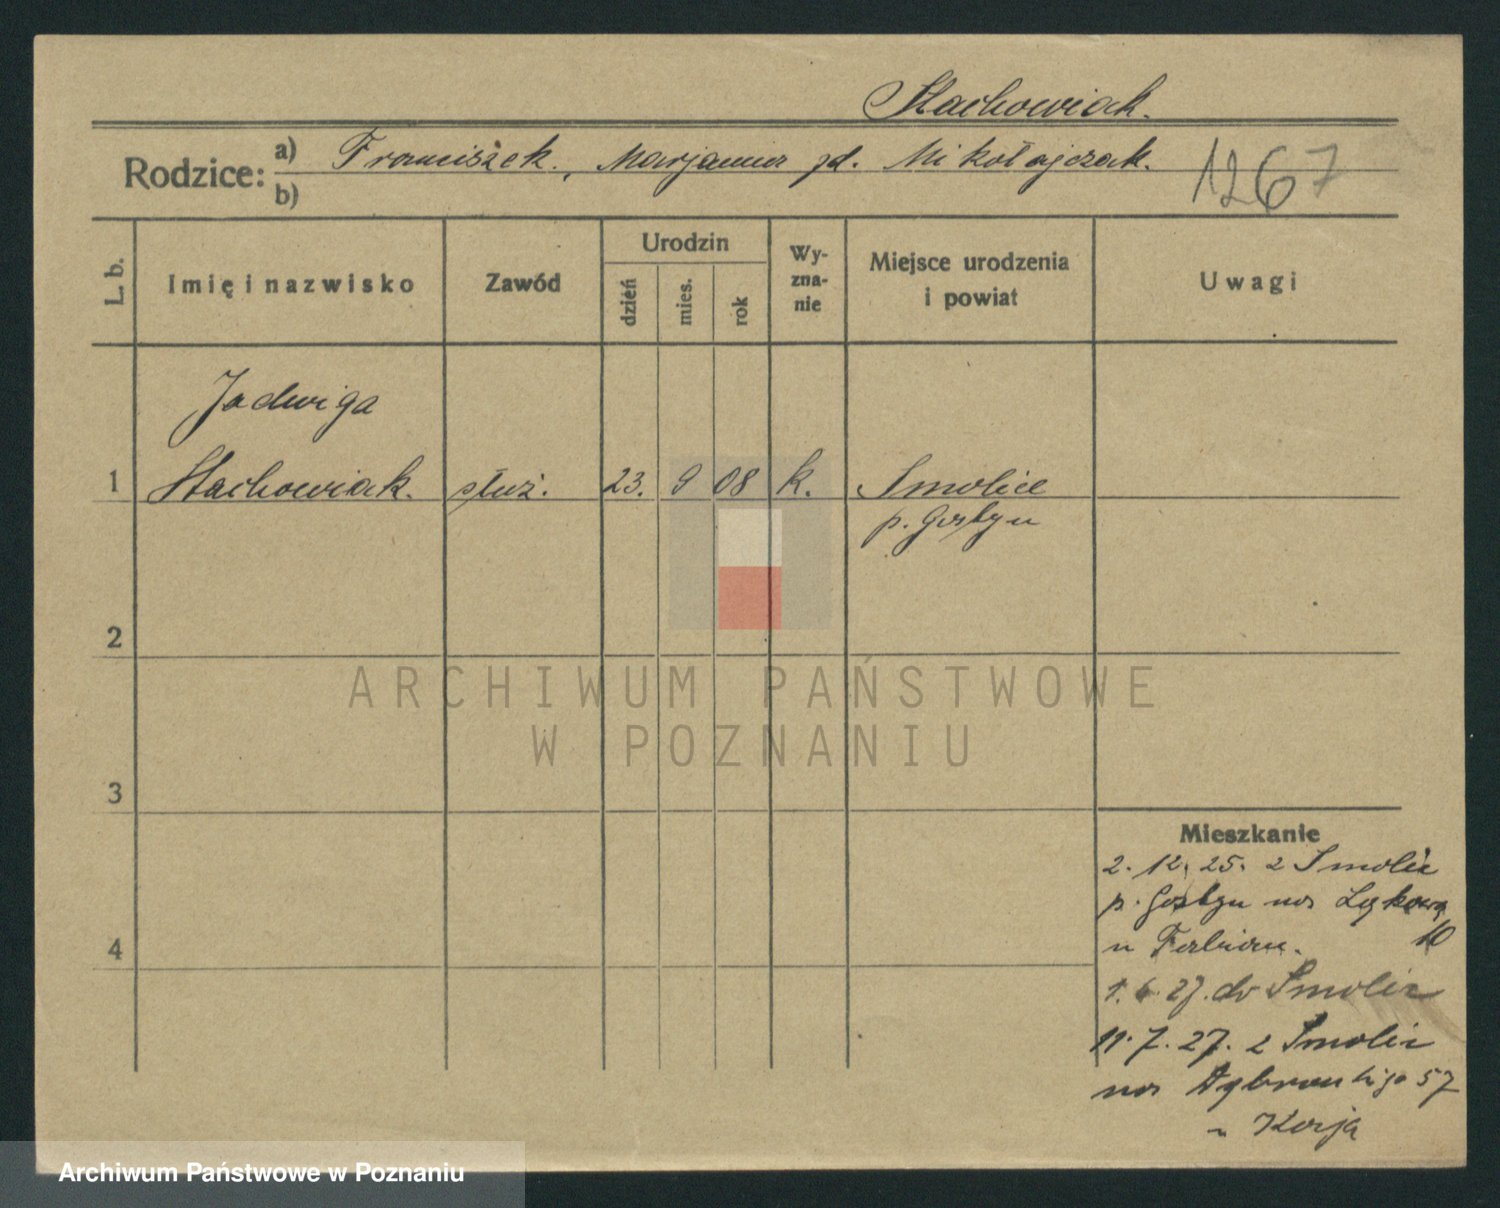 Stachowiak.
Rodzice: a) Franciszek, Marjanna zd. Mikołajczak.
b)
1267
L. b.
Imię i nazwisko
Zawód
Urodzin
dzień
mies.
rok
Wy-
zna-
nie
Miejsce urodzenia
i powiat
Uwagi
Jadwiga
1 Stachowiak. służ. 23. 9 08 k. Smolice
p. Gostyń
2
3
4
Mieszkanie
2. 12. 25. z Smolic
p. Gostyń na Łąkową
10
u Fabian.
1. 6. 27. do Smolic
11. 7. 27. z Smolic
na Dąbrowskiego 57
ARCHIWUM PAŃSTWOWE
W POZNANIU
Archiwum Państwowe w Poznaniu